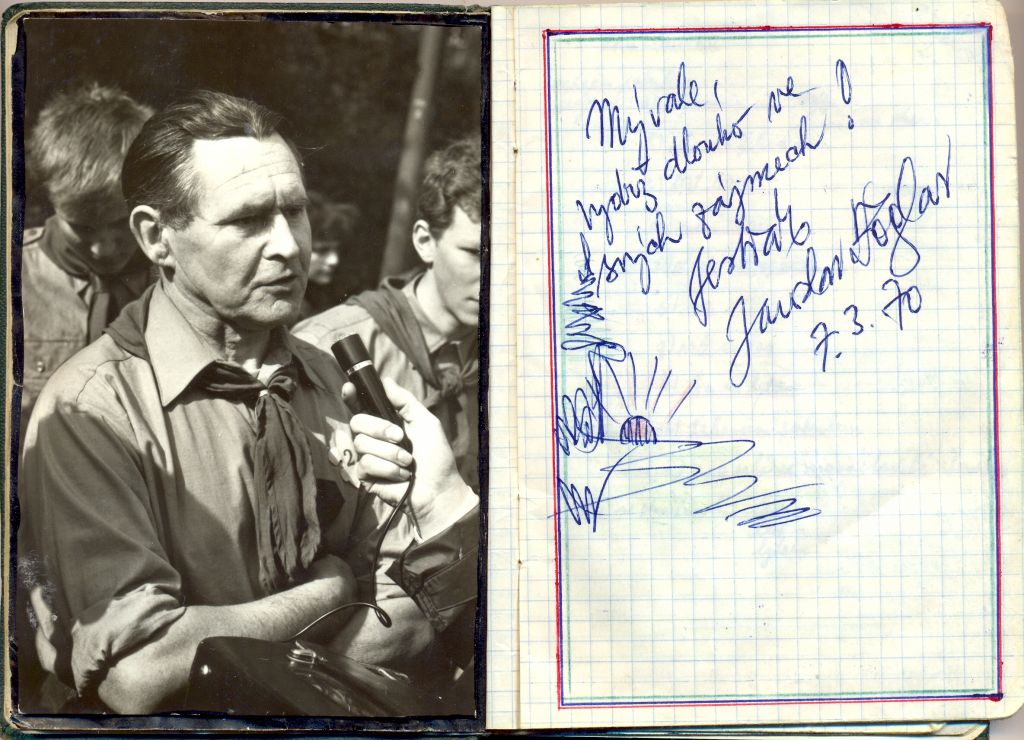 Mývale,
vydrž dlouho ve
svých zájmech!
Jestřáb
Jaroslav Foglar
7. 3. 70